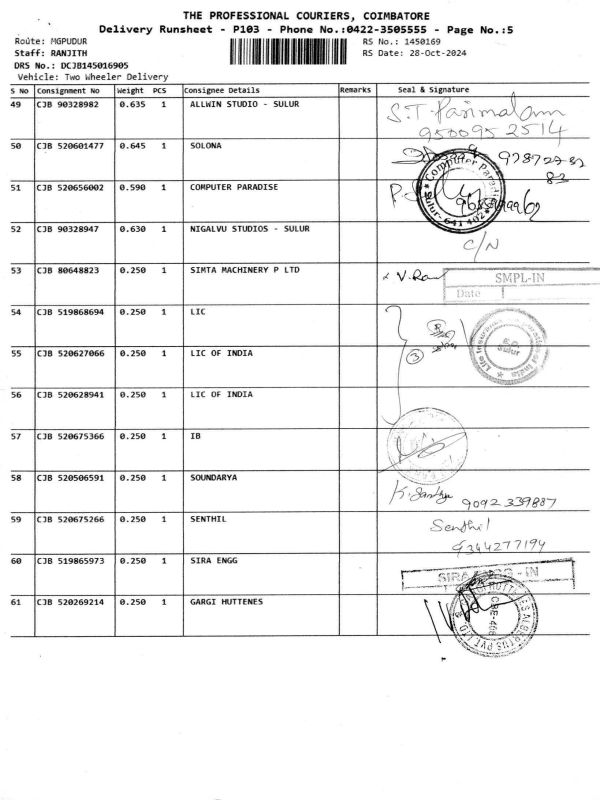 THE PROFESSIONAL COURIERS, COIMBATORE
Delivery Runsheet - P103 - Phone No.:0422-3505555 - Page No.:5
Route: MGPUDUR RS No.: 1450169
Staff: RANJITH RS Date: 28-Oct-2024
DRS No.: DCJB145016905
Vehicle: Two Wheeler Delivery
S No Consignment No Weight PCS Consignee Details Remarks Seal & Signature
49 CJB 90328982 0.635 1 ALLWIN STUDIO - SULUR S.T. Parimalam
9500952514
50 CJB 520601477 0.645 1 SOLONA
51 CJB 520656002 0.590 1 COMPUTER PARADISE Computer Paradise Sulur-641 402
52 CJB 90328947 0.630 1 NIGALVU STUDIOS - SULUR C/N
53 CJB 80648823 0.250 1 SIMTA MACHINERY P LTD SMPL-IN
Date
54 CJB 519868694 0.250 1 LIC S.O. Sulur
55 CJB 520627066 0.250 1 LIC OF INDIA 3
56 CJB 520628941 0.250 1 LIC OF INDIA
57 CJB 520675366 0.250 1 IB
58 CJB 520506591 0.250 1 SOUNDARYA 9092 339887
59 CJB 520675266 0.250 1 SENTHIL Senthil
9344277194
60 CJB 519865973 0.250 1 SIRA ENGG SIRA ENGG - IN
61 CJB 520269214 0.250 1 GARGI HUTTENES